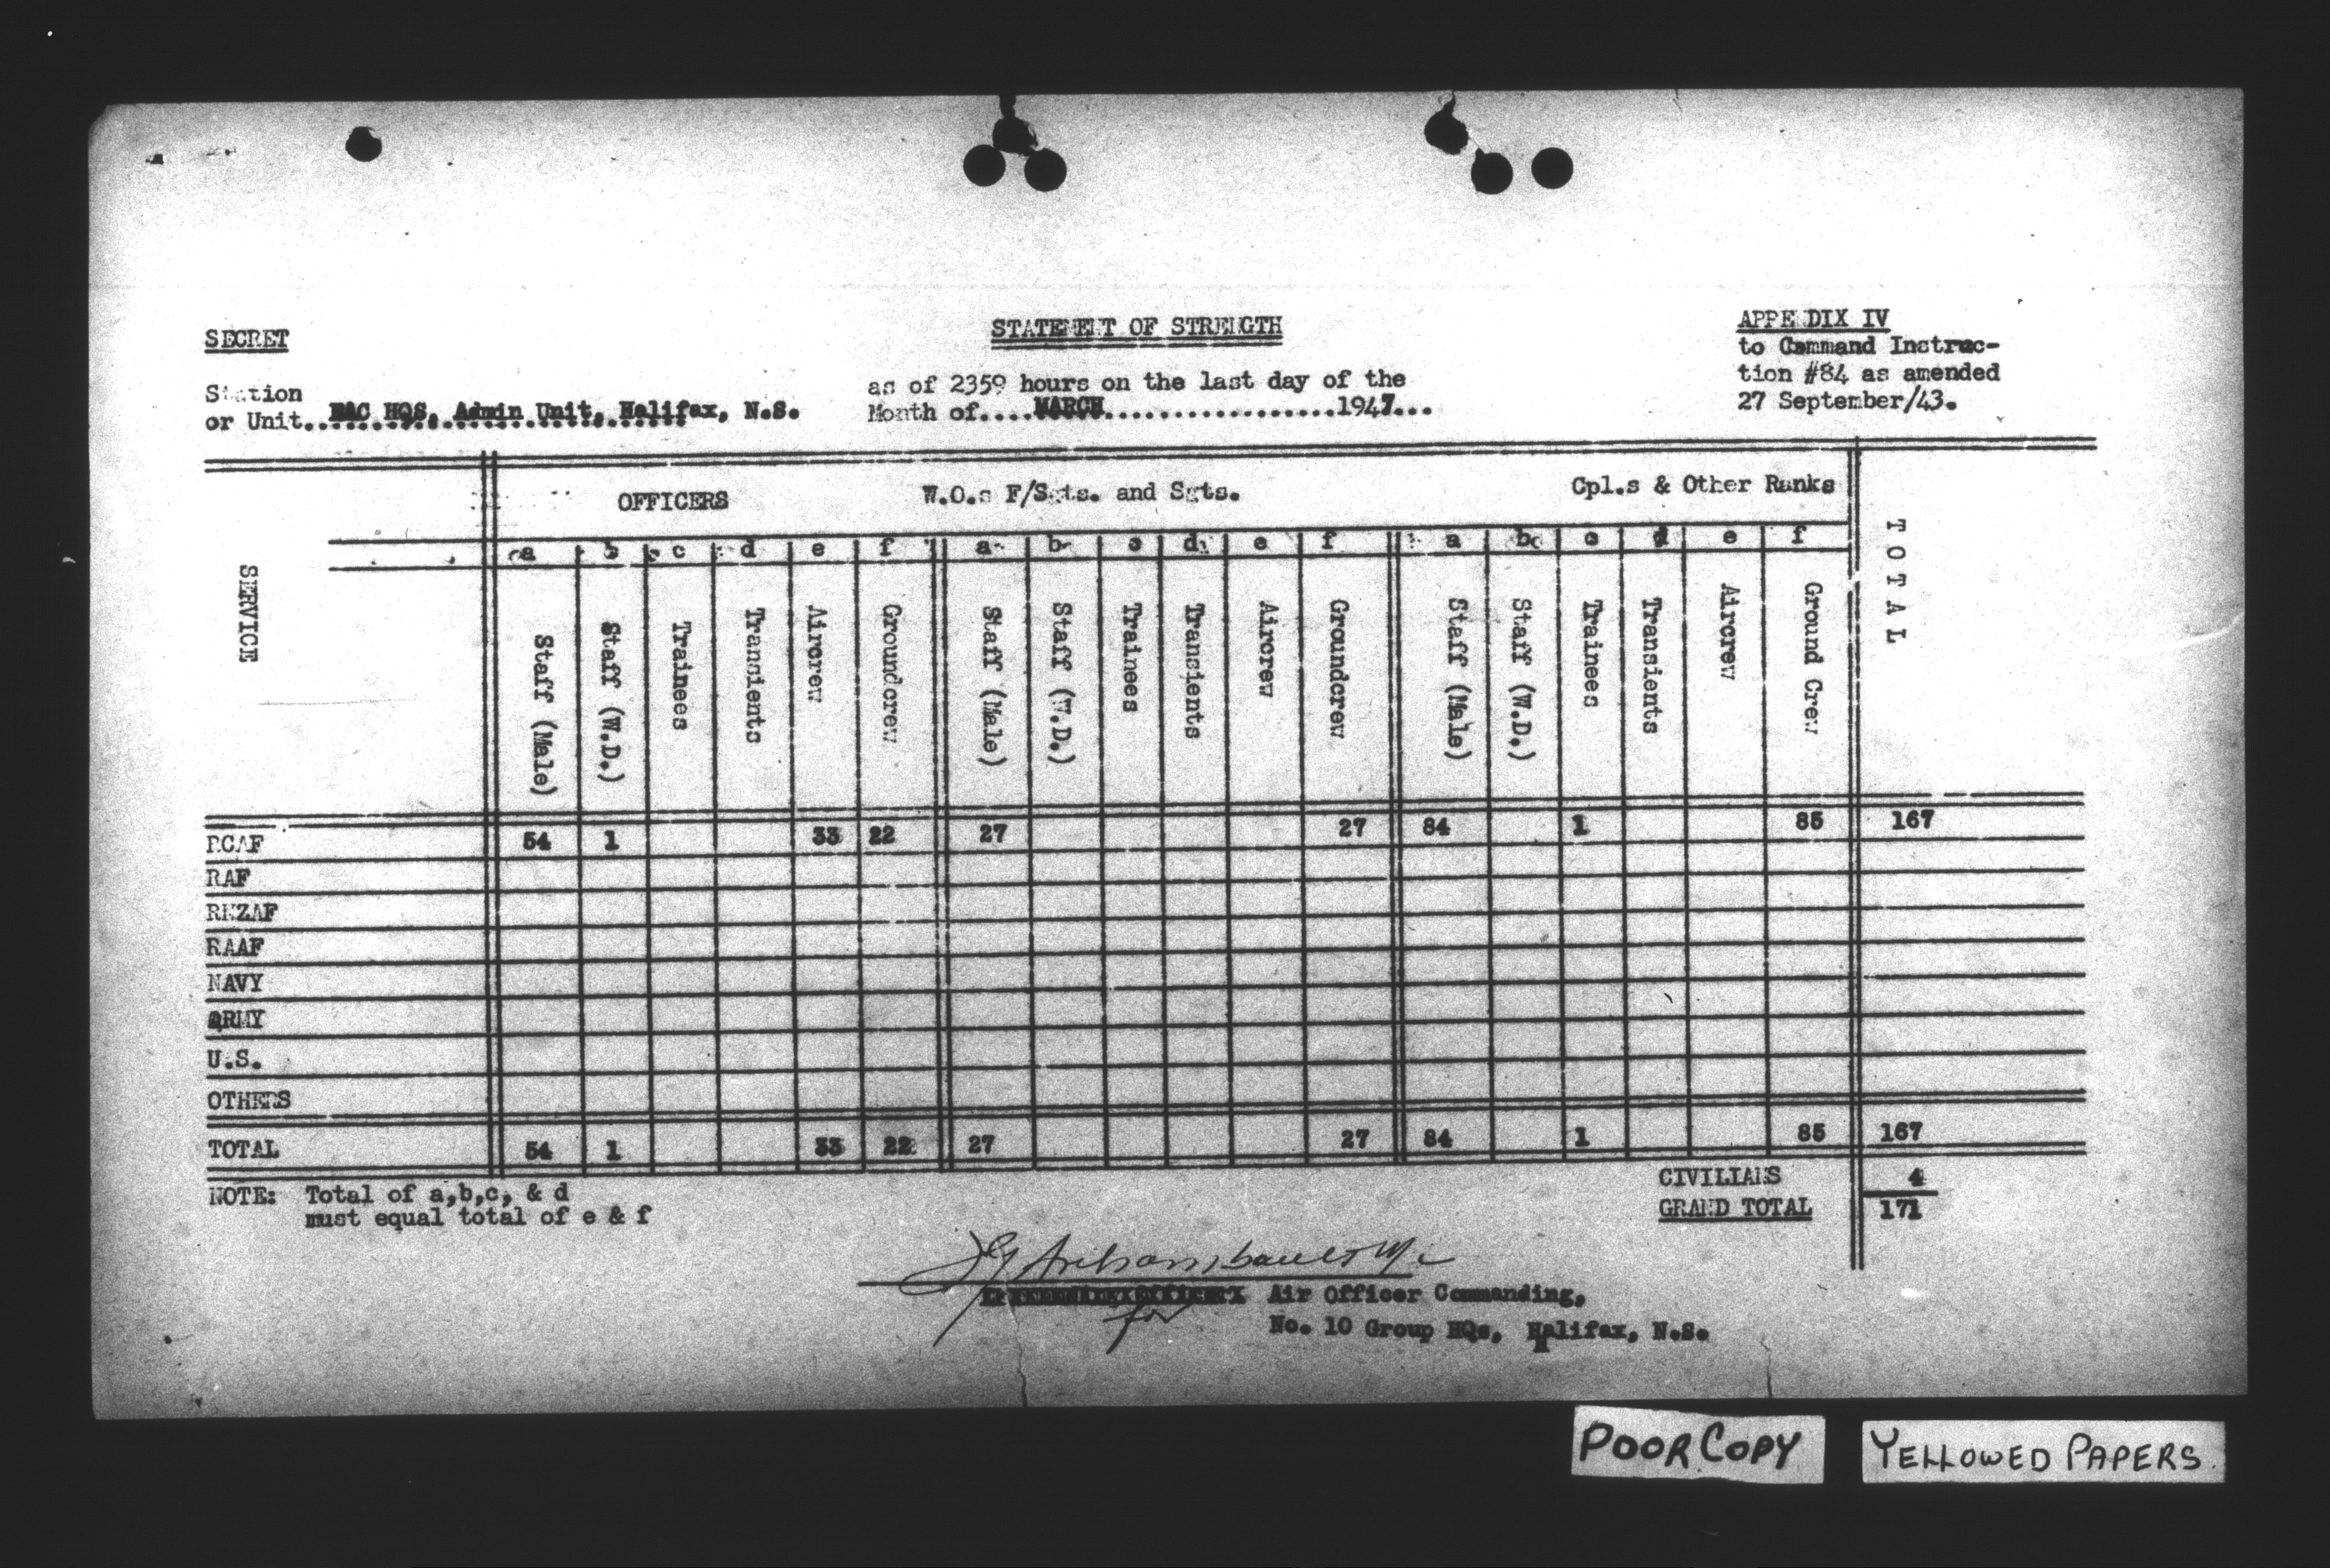 SECRET
STATEMENT OF STRENGTH
APPE DIX IV
to Command Instruc-
tion #84 as amended
27 September/43.
Station
or Unit..EAC HQS, Admin Unit, Halifax, N.S.
as of 2359 hours on the last day of the
Month of....MARCH.................1947...
SERVICE
OFFICERS
W.O.s F/Sgts. and Sgts.
Cpl.s & Other Ranks
TOTAL
a b c d e f a b c d e f a b c d e f
Staff (Male)
Staff (W.D.)
Trainees
Transients
Aircrew
Groundcrew
Staff (Male)
Staff (W.D.)
Trainees
Transients
Aircrew
Groundcrew
Staff (Male)
Staff (W.D.)
Trainees
Transients
Aircrew
Ground Crew
RCAF 54 1 33 22 27 27 84 1 85 167
RAF
RNZAF
RAAF
NAVY
ARMY
U.S.
OTHERS
TOTAL 54 1 33 22 27 27 84 1 85 167
NOTE: Total of a,b,c, & d
must equal total of e & f
CIVILIANS 4
GRAND TOTAL 171
Air Officer Commanding,
for
No. 10 Group HQs, Halifax, N.S.
POOR COPY
YELLOWED PAPERS.